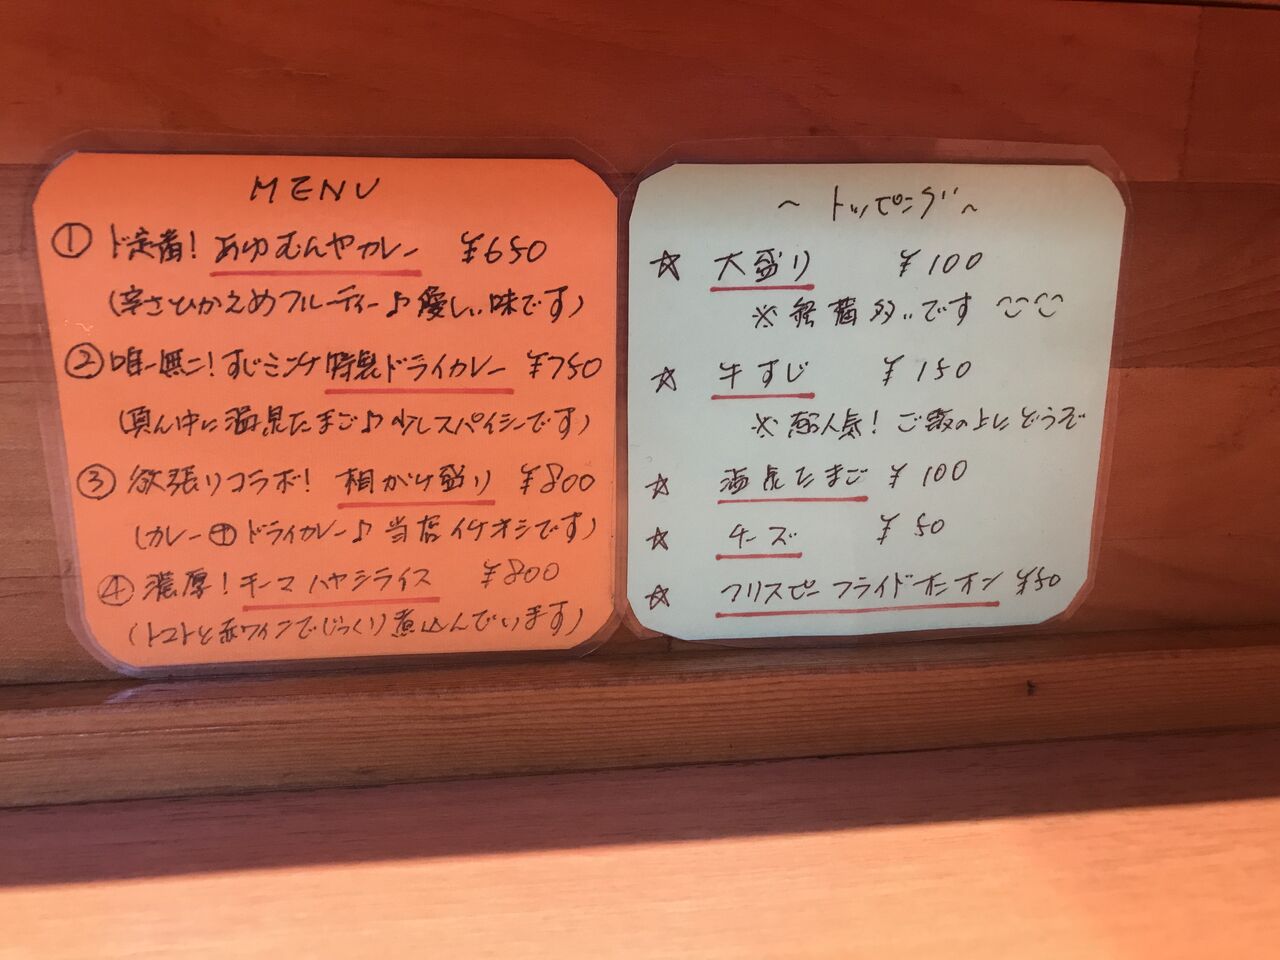 MENU
① ド定番！あゆむんやカレー ¥650
（辛さひかえめフルーティー♪優しい味です）
② 唯一無二！すじミンチ特製ドライカレー ¥750
（真ん中に温泉たまご♪少しスパイシーです）
③ 欲張りコラボ！相がけ盛り ¥800
（カレー⊕ドライカレー♪当店イチオシです）
④ 濃厚！キーマハヤシライス ¥800
（トマトと赤ワインでじっくり煮込んでいます）
～トッピング～
☆ 大盛り ¥100
※ 多いです
☆ 牛すじ ¥150
※ 超人気！ご飯の上にどうぞ
☆ 温泉たまご ¥100
☆ チーズ ¥50
☆ クリスピーフライドオニオン ¥50